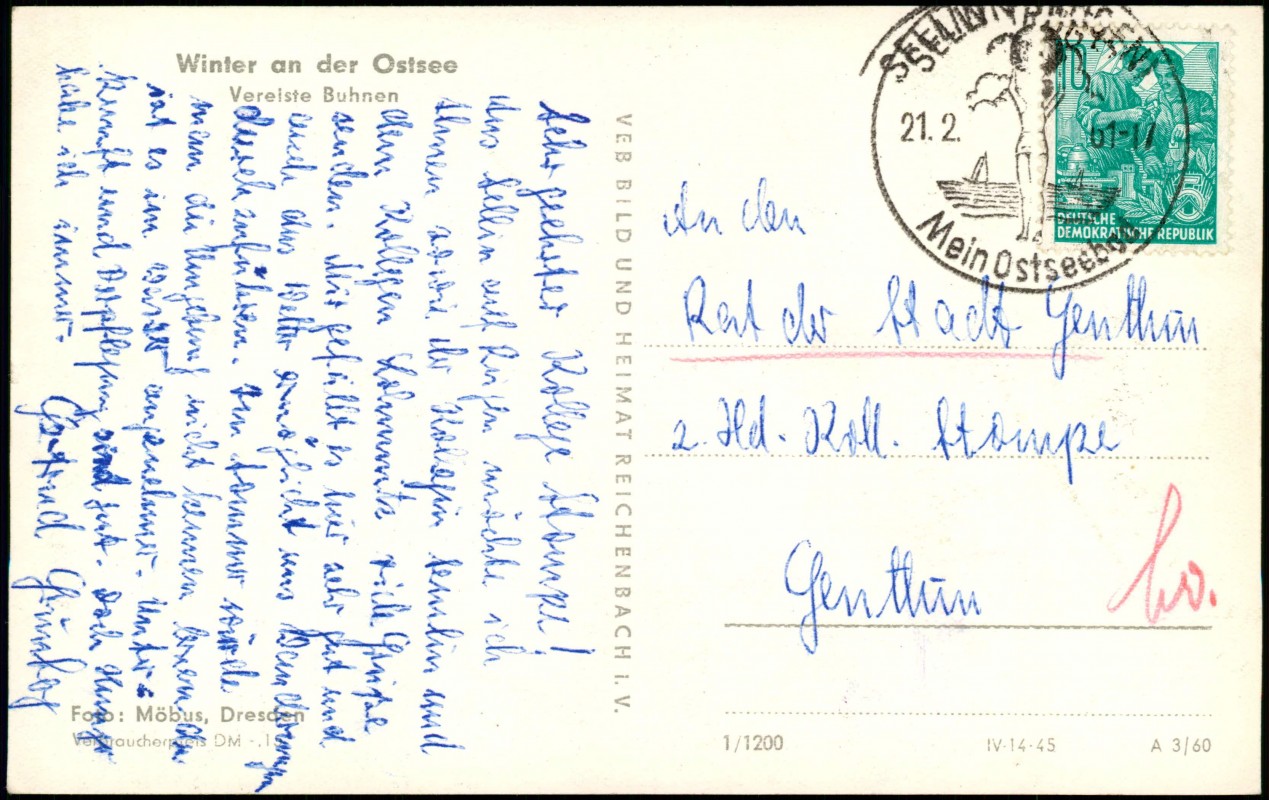 Winter an der Ostsee
Vereiste Buhnen
Sehr geehrter Kollege Stampe!
Aus Sellin auf Rügen möchte ich
Ihnen sowie der Kollegin und
dem Kollegen viele Grüße
senden. Mir gefällt es hier sehr gut und
auch das Wetter ermöglicht uns Wanderungen
durchzuführen. Im Sommer würde
man die Umgebung nicht kennen lernen da
ist es im angenehmer. Unter=
kunft und Verpflegung sind gut. Doch Hunger
habe ich immer.
Gertrud
Foto: Möbus, Dresden
Verbraucherpreis DM -.15
VEB BILD UND HEIMAT REICHENBACH i. V.
SELLIN
21. 2. 61-17
Mein Ostseebad
10
5
DEUTSCHE
DEMOKRATISCHE REPUBLIK
An den
Rat der Stadt Genthin
z. Hd. Koll. Stampe
Genthin
1/1200
IV-14-45
A 3/60